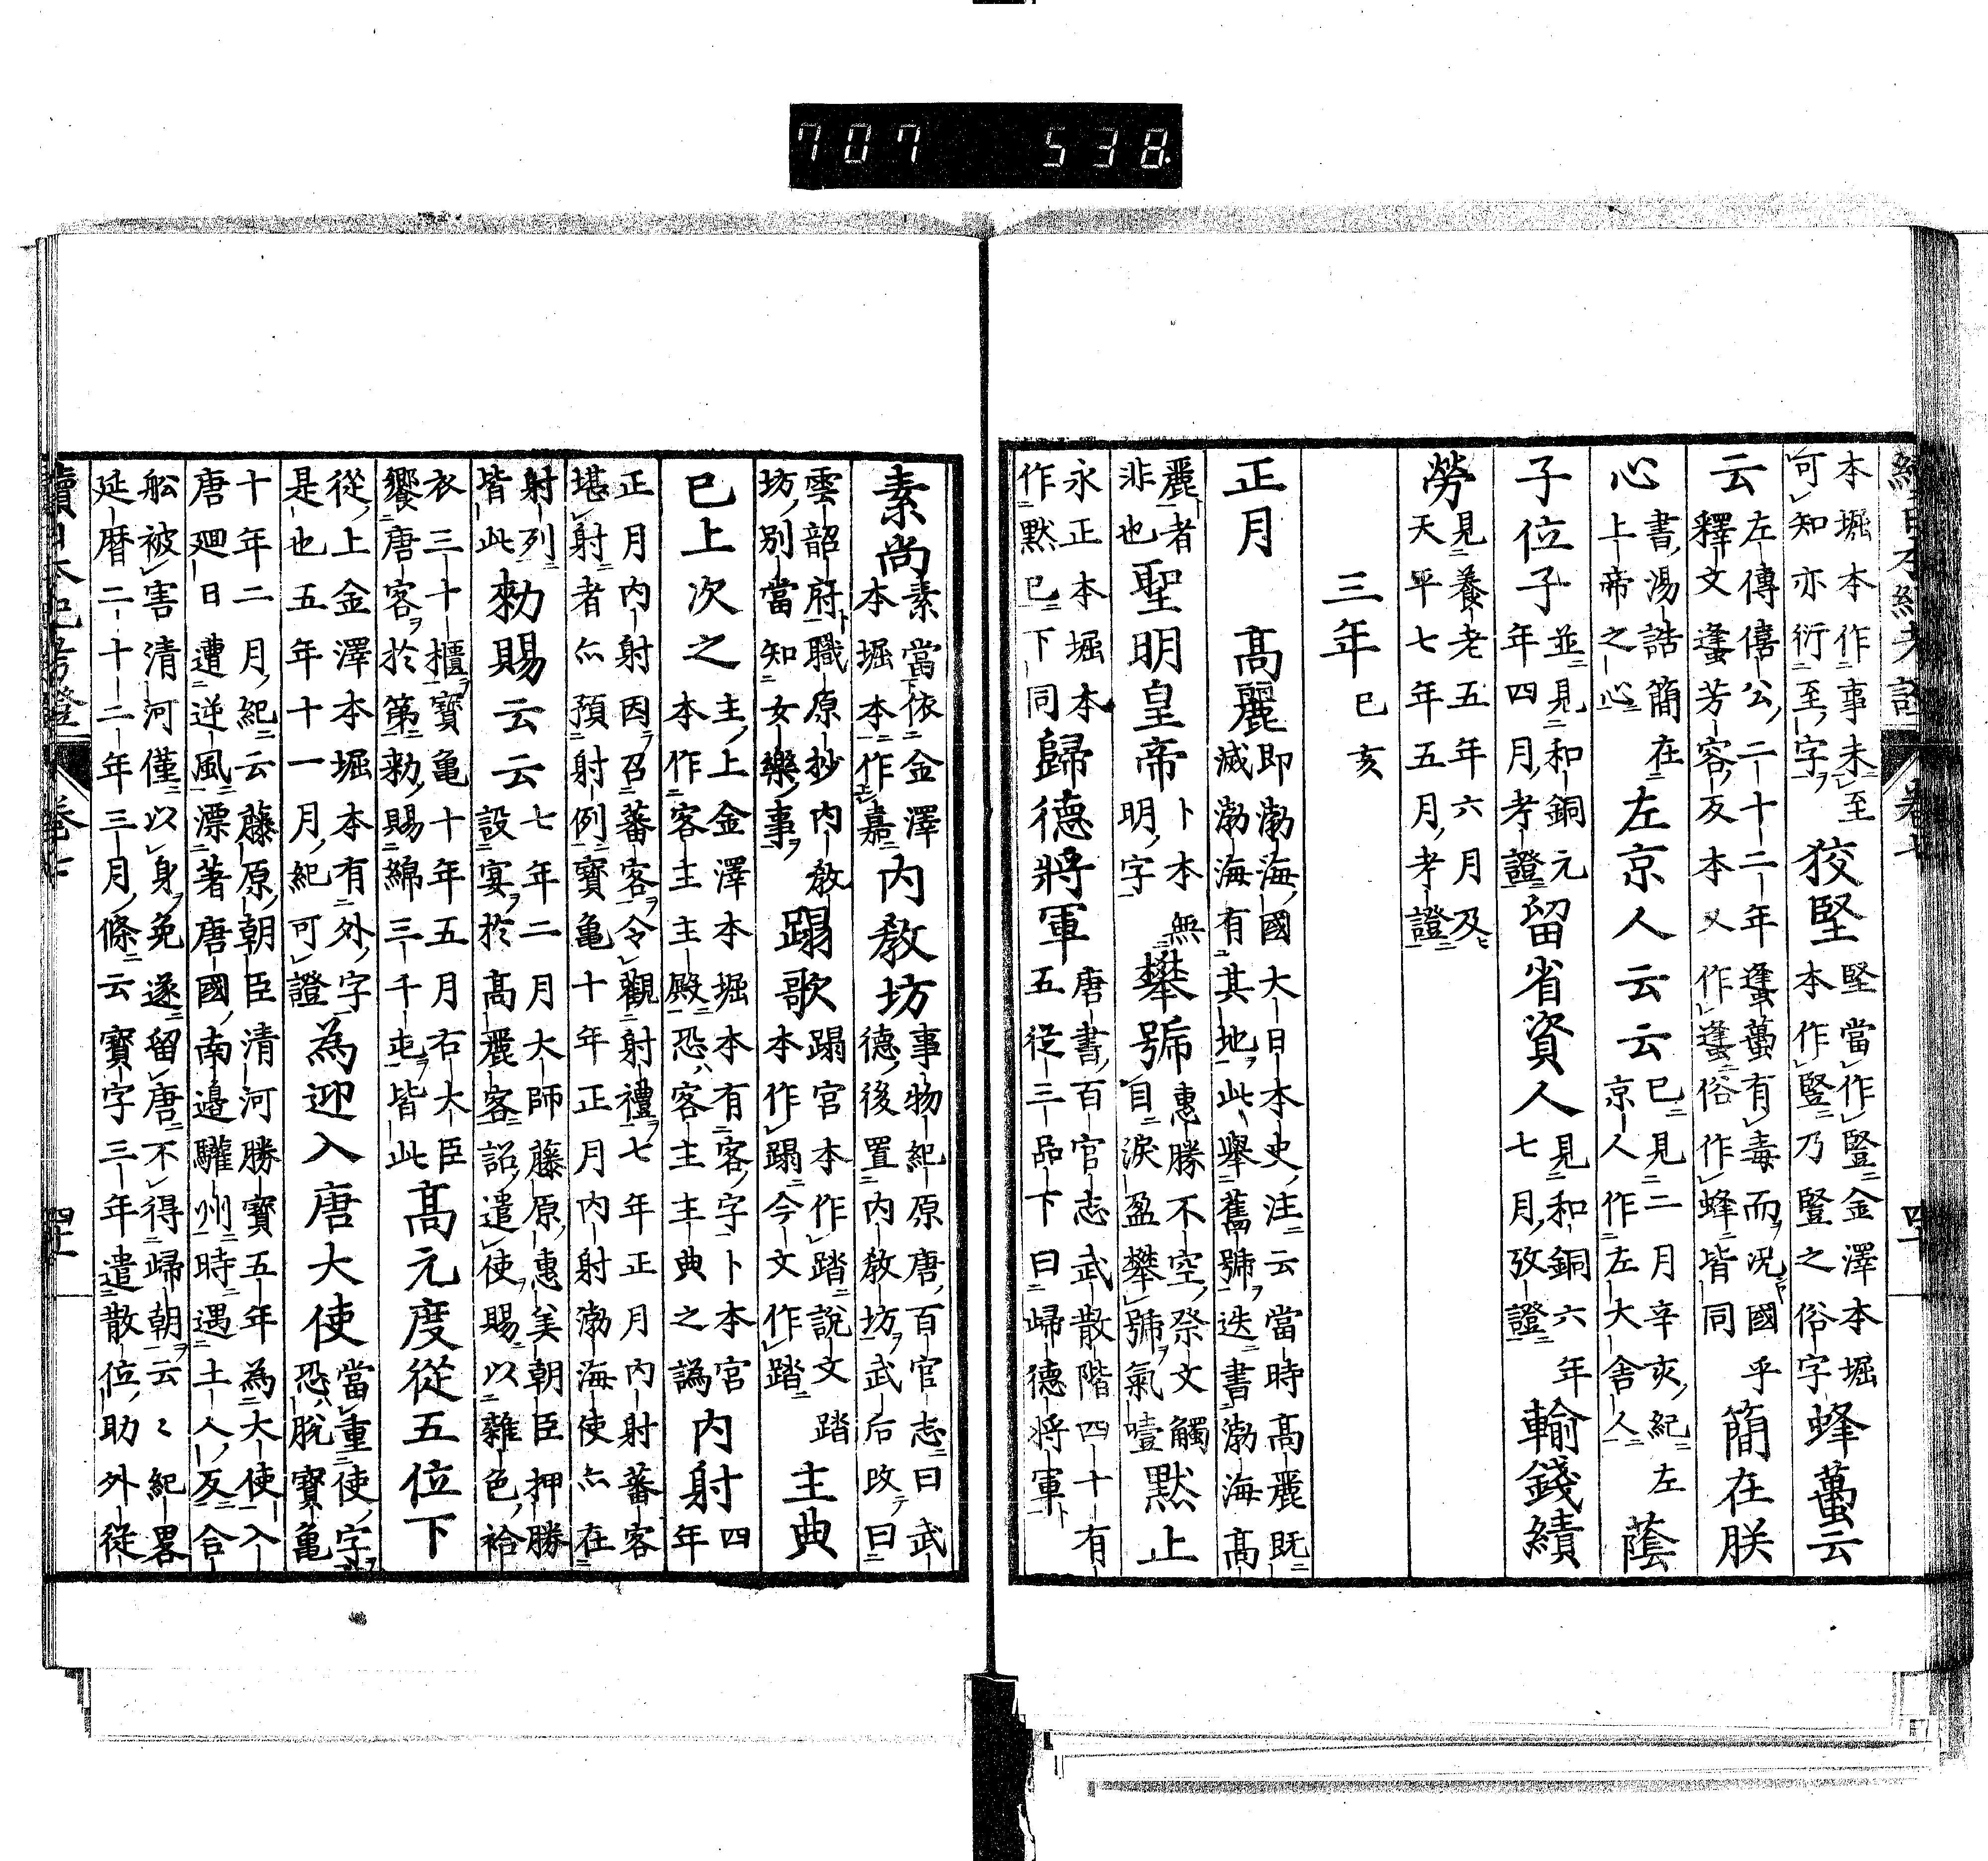 707 538
續日本紀考證 卷七 四十
本堀本作事未至
可知亦衍至字 狡堅 堅當作豎金澤本堀
本作豎乃豎之俗字 蜂蠆云
云 左傳僖公二十二年蠭蠆有毒而況國乎
釋文蠭芳容反本又作蠭俗作蜂皆同 簡在朕
心 書湯誥簡在
上帝之心 左京人云云 已見二月辛亥紀左
京人作左大舍人 蔭
子位子 並見和銅元
年四月考證 留省資人 見和銅六年
七月攷證 輸錢續
勞 見養老五年六月及
天平七年五月考證
三年 己亥
正月 高麗 即渤海國大日本史注云當時高麗既
滅渤海有其地此舉舊號迭書渤海高
麗者
非也 聖明皇帝 卜本無
明字 攀號 惠勝不空祭文觸
目淚盈攀號氣噎 默止
永正本堀本
作黙已下同 歸德將軍 唐書百官志武散階四十有
五從三品下曰歸德將軍
素尚 素當依金澤
本堀本作嘉 内敎坊 事物紀原唐百官志曰武
德後置内敎坊武后改曰
雲韶府職原抄内敎
坊別當知女樂事 蹋歌 蹋宮本作踏說文踏
本作蹋今文作踏 主典
已上次之 主上金澤本堀本有客字卜本宮
本作客主主殿恐客主主典之譌 内射 四
年
正月内射因召蕃客令觀射禮七年正月内射蕃客
堪射者亦預射例寶龜十年正月内射渤海使亦在
射列
皆此 勑賜云云 七年二月大師藤原惠美朝臣押勝
設宴於高麗客詔遣使賜以雜色袷
衣三十櫃寶龜十年五月右大臣
饗唐客於第勑賜綿三千屯皆此 高元度從五位下
從上金澤本堀本有外字
是也五年十一月紀可證 為迎入唐大使 當重使字
恐脫寶龜
十年二月紀云藤原朝臣清河勝寶五年為大使入
唐廻日遭逆風漂著唐國南邊驩州時遇土人反合
舩被害清河僅以身免遂留唐不得歸朝云々紀畧
延曆二十二年三月條云寶字三年遣散位助外從
續日本紀考證 卷七 四十一